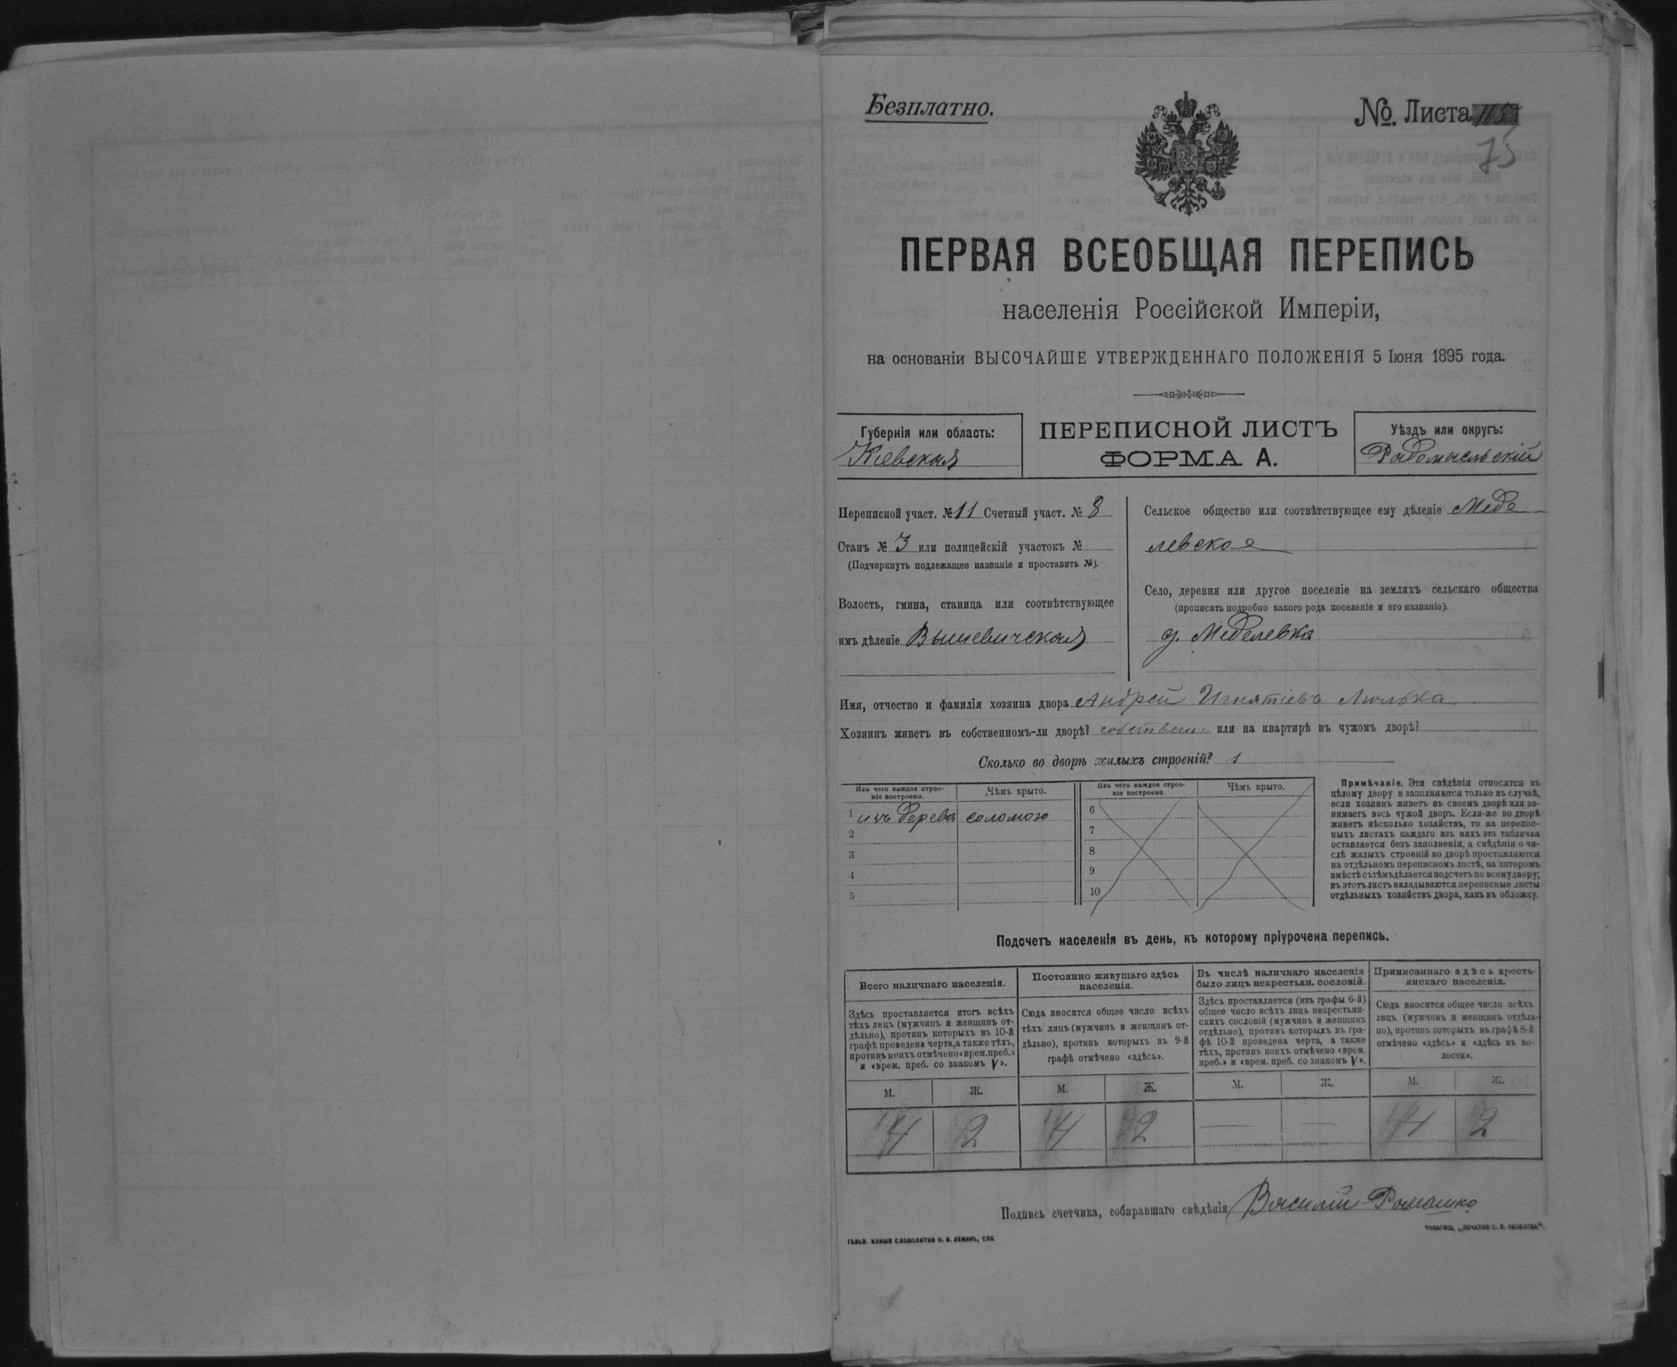 Безплатно.
№ Листа 115
75
ПЕРВАЯ ВСЕОБЩАЯ ПЕРЕПИСЬ
населенія Россійской Имперіи,
на основаніи ВЫСОЧАЙШЕ УТВЕРЖДЕННАГО ПОЛОЖЕНІЯ 5 Іюня 1895 года.
Губернія или область:
Кіевская
ПЕРЕПИСНОЙ ЛИСТЪ
ФОРМА А.
Уѣздъ или округъ:
Радомысльскій
Переписной участ. № 11 Счетный участ. № 8
Станъ № 3 или полицейскій участокъ №
(Подчеркнуть подлежащее названіе и проставить №).
Волость, гмина, станица или соотвѣтствующее
имъ дѣленіе Вышевичская
Сельское общество или соотвѣтствующее ему дѣленіе Меде
левское
Село, деревня или другое поселеніе на земляхъ сельскаго общества
(прописать подробно какого рода поселеніе и его названіе).
д. Меделевка
Имя, отчество и фамилія хозяина двора Андрей Игнатіевъ Люлька
Хозяинъ живетъ въ собственномъ-ли дворѣ? собствен. или на квартирѣ въ чужомъ дворѣ?
Сколько во дворѣ жилыхъ строеній? 1
Изъ чего каждое строе-
ніе построено.
Чѣмъ крыто.
1 изъ дерева соломою
2
3
4
5
Изъ чего каждое строе-
ніе построено.
Чѣмъ крыто.
6
7
8
9
10
Примѣчаніе. Эти свѣдѣнія относятся къ
цѣлому двору и заполняются только въ случаѣ,
если хозяинъ живетъ въ своемъ дворѣ или за-
нимаетъ весь чужой дворъ. Если-же во дворѣ
живетъ нѣсколько хозяйствъ, то на перепис-
ныхъ листахъ каждаго изъ нихъ эта табличка
оставляется безъ заполненія, а свѣдѣнія о чи-
слѣ жилыхъ строеній во дворѣ проставляются
на отдѣльномъ переписномъ листѣ, на которомъ
вмѣстѣ съ тѣмъ дѣлается подсчетъ по всему двору;
въ этотъ листъ вкладываются переписные листы
отдѣльныхъ хозяйствъ двора, какъ въ обложку.
Подсчетъ населенія въ день, къ которому пріурочена перепись.
Всего наличнаго населенія.
Здѣсь проставляется итогъ всѣхъ
тѣхъ лицъ (мужчинъ и женщинъ от-
дѣльно), противъ которыхъ въ 10-й
графѣ проведена черта, а также тѣхъ,
противъ коихъ отмѣчено «врем. преб.»
и «врем. преб. со знакомъ V».
М. Ж.
4 2
Постоянно живущаго здѣсь
населенія.
Сюда вносится общее число всѣхъ
тѣхъ лицъ (мужчинъ и женщинъ от-
дѣльно), противъ которыхъ въ 9-й
графѣ отмѣчено «здѣсь».
М. Ж.
4 2
Въ числѣ наличнаго населенія
было лицъ некрестьян. сословій.
Здѣсь проставляется (изъ графы 6-й)
общее число всѣхъ лицъ некрестьян-
скихъ сословій (мужчинъ и женщинъ
отдѣльно), противъ которыхъ въ гра-
фѣ 10-й проведена черта, а также
тѣхъ, противъ коихъ отмѣчено «врем.
преб.» и «врем. преб. со знакомъ V».
М. Ж.
— —
Приписаннаго здѣсь кресть-
янскаго населенія.
Сюда вносится общее число всѣхъ
лицъ (мужчинъ и женщинъ отдѣль-
но), противъ которыхъ въ графѣ 8-й
отмѣчено «здѣсь» и «здѣсь къ во-
лости».
М. Ж.
4 2
Подпись счетчика, собиравшаго свѣдѣнія Василій Ромашко
ГАЛЬВ. КЛИШЕ СЛОВОЛИТНИ О. И. ЛЕМАНЪ, СПБ
ТОВАРИЩ. „ПЕЧАТНЯ С. П. ЯКОВЛЕВА".